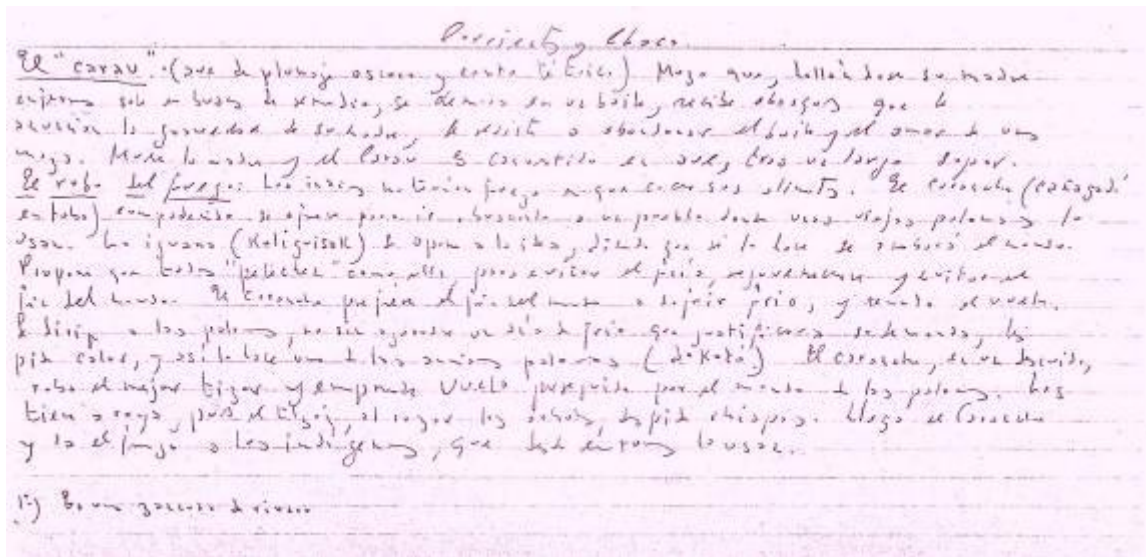 y Chaco
El "carau". (ave de plumaje oscuro y canto tétrico) Mozo que, hallándose su madre
enferma sale en busca de remedio, se demora en un baile, recibe que le
la gravedad de su madre, se resiste a abandonar el baile y el amor de una
moza. Muere la madre y el Carau es convertido en ave, tras un largo sopor.
El robo del fuego: Los indios no tenían fuego en que cocer sus alimentos. El carancho (
en toba) se ofrece para ir a buscarlo a un pueblo donde unas viejas palomas lo
usan. La iguana (Kaliguisak) se opone a la idea, diciendo que si lo hace se el mundo.
Propone que todos "pelechen" como ella, para evitar el frío, rejuvenecerse y evitar el
fin del mundo. El carancho prefiere el fin del mundo a sufrir frío, y el vuelo.
Se dirige a las palomas, no sin un día de frío que justificara su demanda, les
pide calor, y así lo hace una de las ancianas palomas (dokoto) El carancho, en un descuido,
roba el mejor tizón y emprende vuelo perseguido por el de las palomas. Las
tiene a raya, pues el tizón, al rozar los, despide chispas. Llega el carancho
y da el fuego a los indígenas, que desde entonces lo usan.
1) Es una de